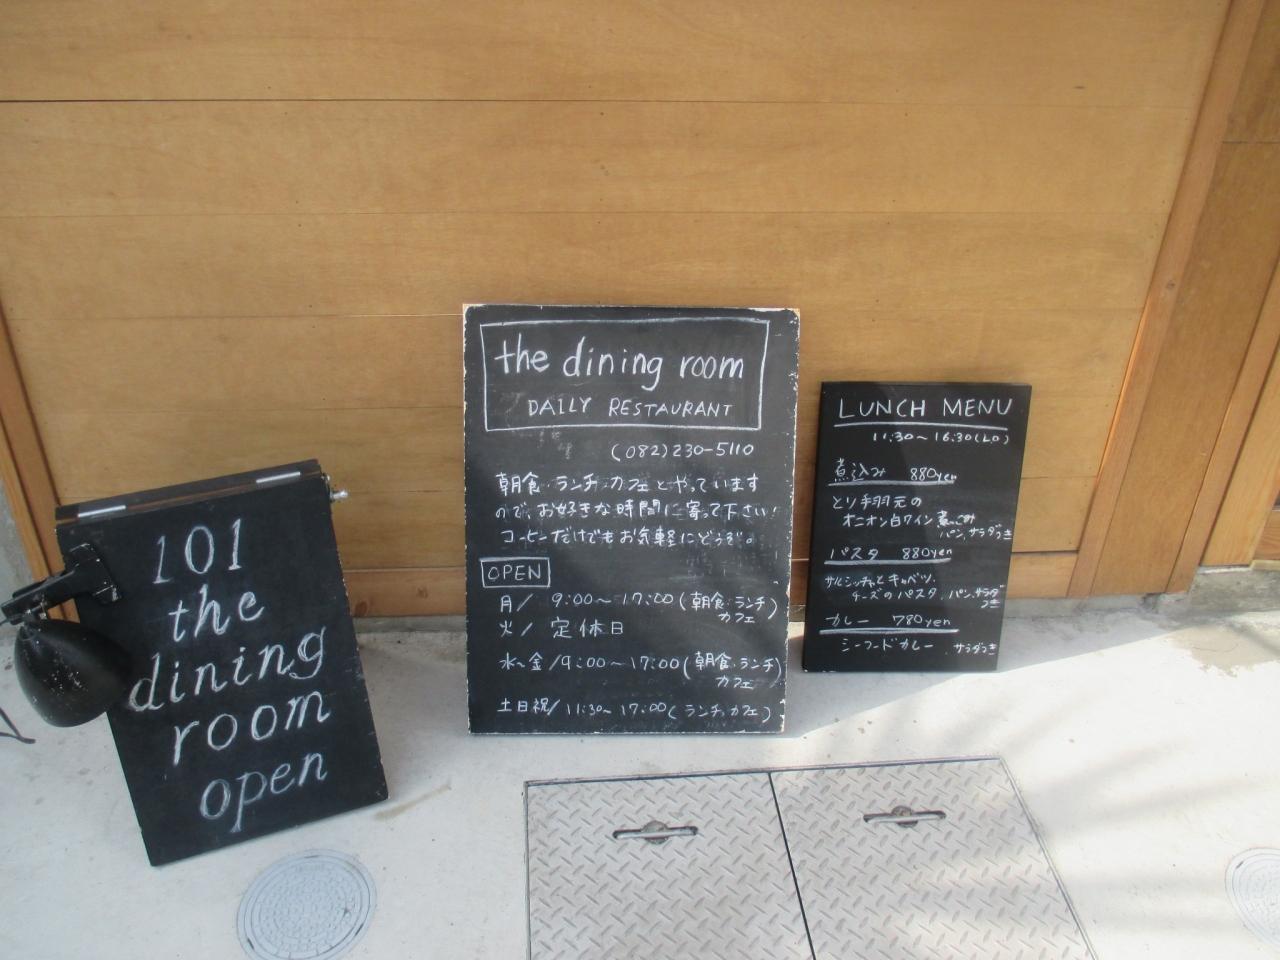 101
the
dining
room
open
the dining room
DAILY RESTAURANT
(082)230-5110
朝食・ランチ・カフェとやっています
ので、お好きな時間に寄って下さい!
コーヒーだけでもお気軽にどうぞ。
OPEN
月/ 9:00〜17:00(朝食・ランチ
カフェ)
火/ 定休日
水〜金/9:00〜17:00(朝食・ランチ
カフェ)
土日祝/11:30〜17:00(ランチ,カフェ)
LUNCH MENU
11:30〜16:30(LO)
煮込み 880yen
とり手羽元の
オニオン白ワイン煮こみ
パン,サラダつき
パスタ 880yen
サルシッチャとキャベツ、
チーズのパスタ,パン,サラダ
つき
カレー 780yen
シーフードカレー ,サラダつき